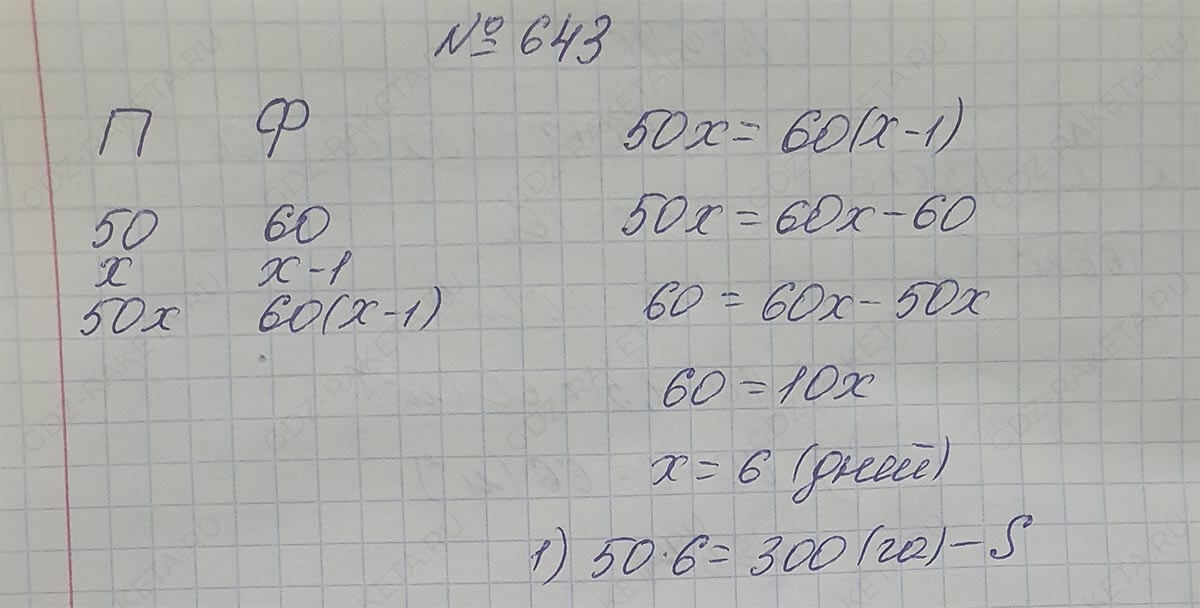 № 643
П Ф
50 60
x x-1
50x 60(x-1)
50x = 60(x-1)
50x = 60x - 60
60 = 60x - 50x
60 = 10x
x = 6 (дней)
1) 50·6 = 300 (га) - S
GDZ-RAKETA.RU